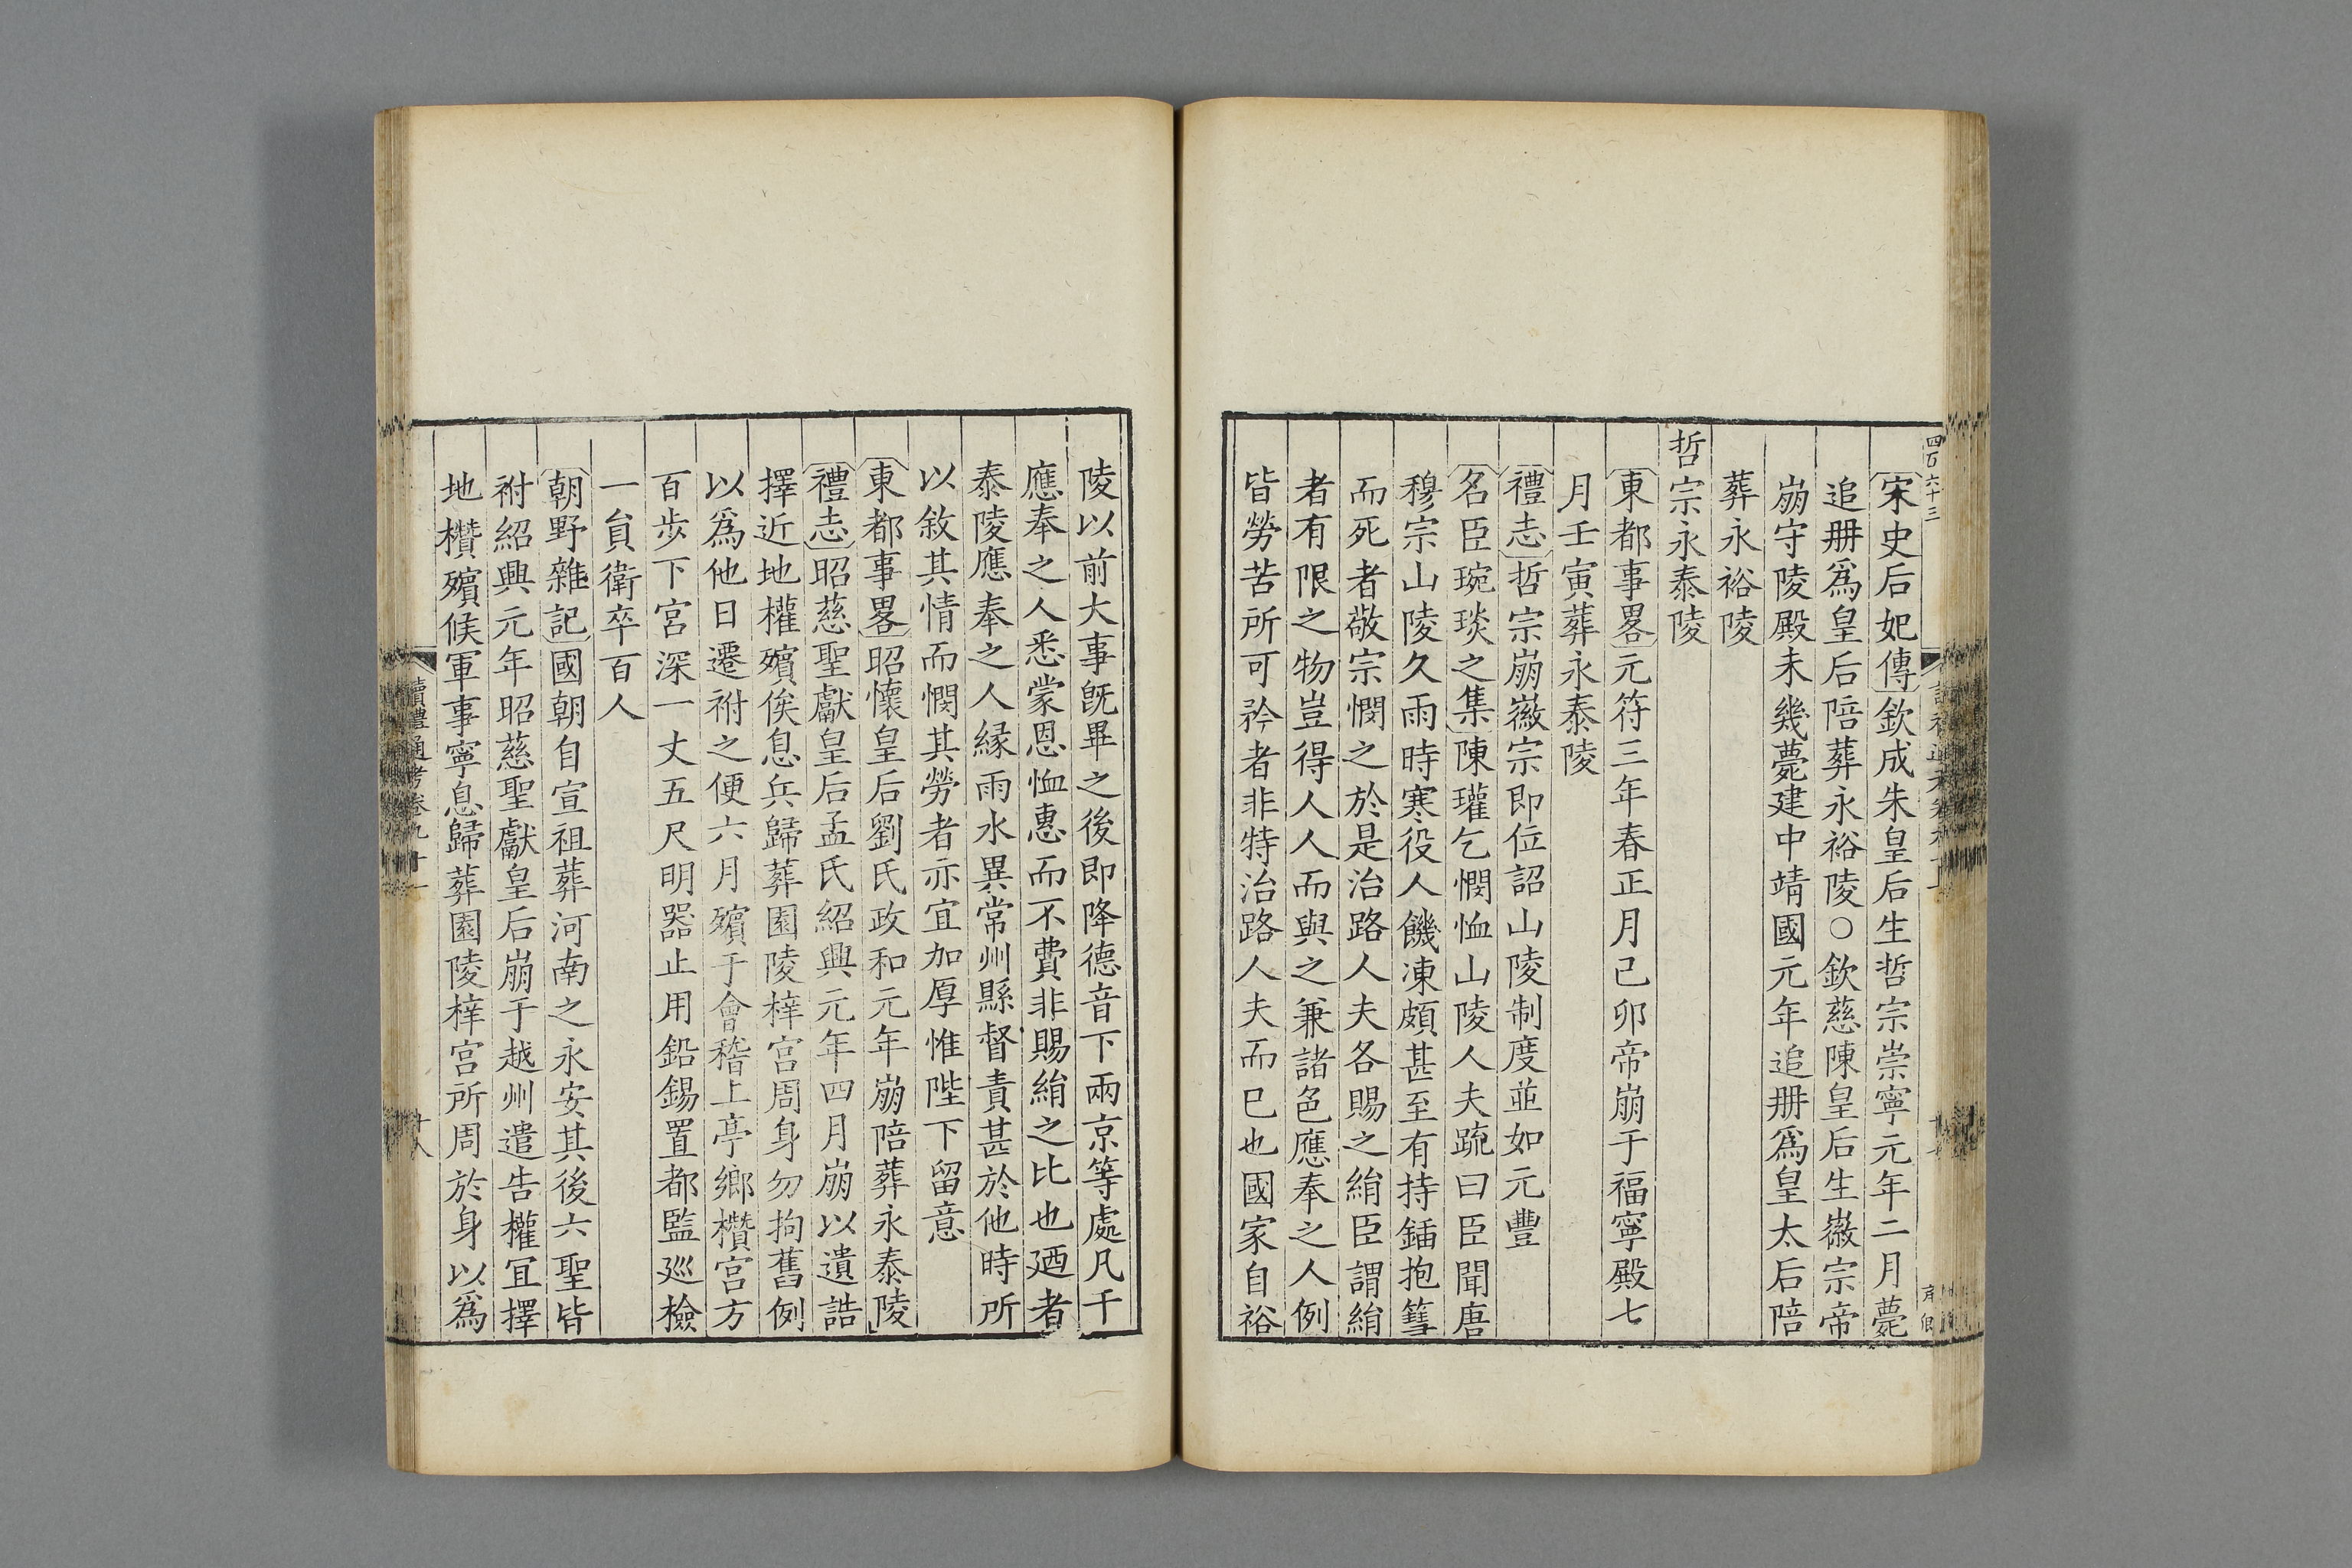 宋史后妃傳欽成朱皇后生哲宗崇寧元年二月薨
追册爲皇后陪葬永裕陵○欽慈陳皇后生徽宗帝
崩守陵殿未幾薨建中靖國元年追册爲皇太后陪
葬永裕陵
哲宗永泰陵
東都事畧元符三年春正月己卯帝崩于福寧殿七
月壬寅葬永泰陵
禮志哲宗崩徽宗即位詔山陵制度並如元豐
名臣琬琰之集陳瓘乞憫恤山陵人夫疏曰臣聞唐
穆宗山陵久雨時寒役人饑凍頗甚至有持鍤抱篲
而死者敬宗憫之於是治路人夫各賜之絹臣謂絹
者有限之物豈得人人而與之兼諸色應奉之人例
皆勞苦所可矜者非特治路人夫而已也國家自裕
陵以前大事旣畢之後即降德音下兩京等處凡干
應奉之人悉蒙恩恤惠而不費非賜絹之比也廼者
泰陵應奉之人緣雨水異常州縣督責甚於他時所
以敘其情而憫其勞者亦宜加厚惟陛下留意
東都事畧昭懷皇后劉氏政和元年崩陪葬永泰陵
禮志昭慈聖獻皇后孟氏紹興元年四月崩以遺誥
擇近地權殯俟息兵歸葬園陵梓宮周身勿拘舊例
以爲他日遷祔之便六月殯于會稽上亭鄉欑宮方
百步下宮深一丈五尺明器止用鉛錫置都監巡檢
一員衛卒百人
朝野雜記國朝自宣祖葬河南之永安其後六聖皆
祔紹興元年昭慈聖獻皇后崩于越州遺告權宜擇
地欑殯候軍事寧息歸葬園陵梓宮所周於身以爲
讀禮通考卷九十一
十八
四百六十三